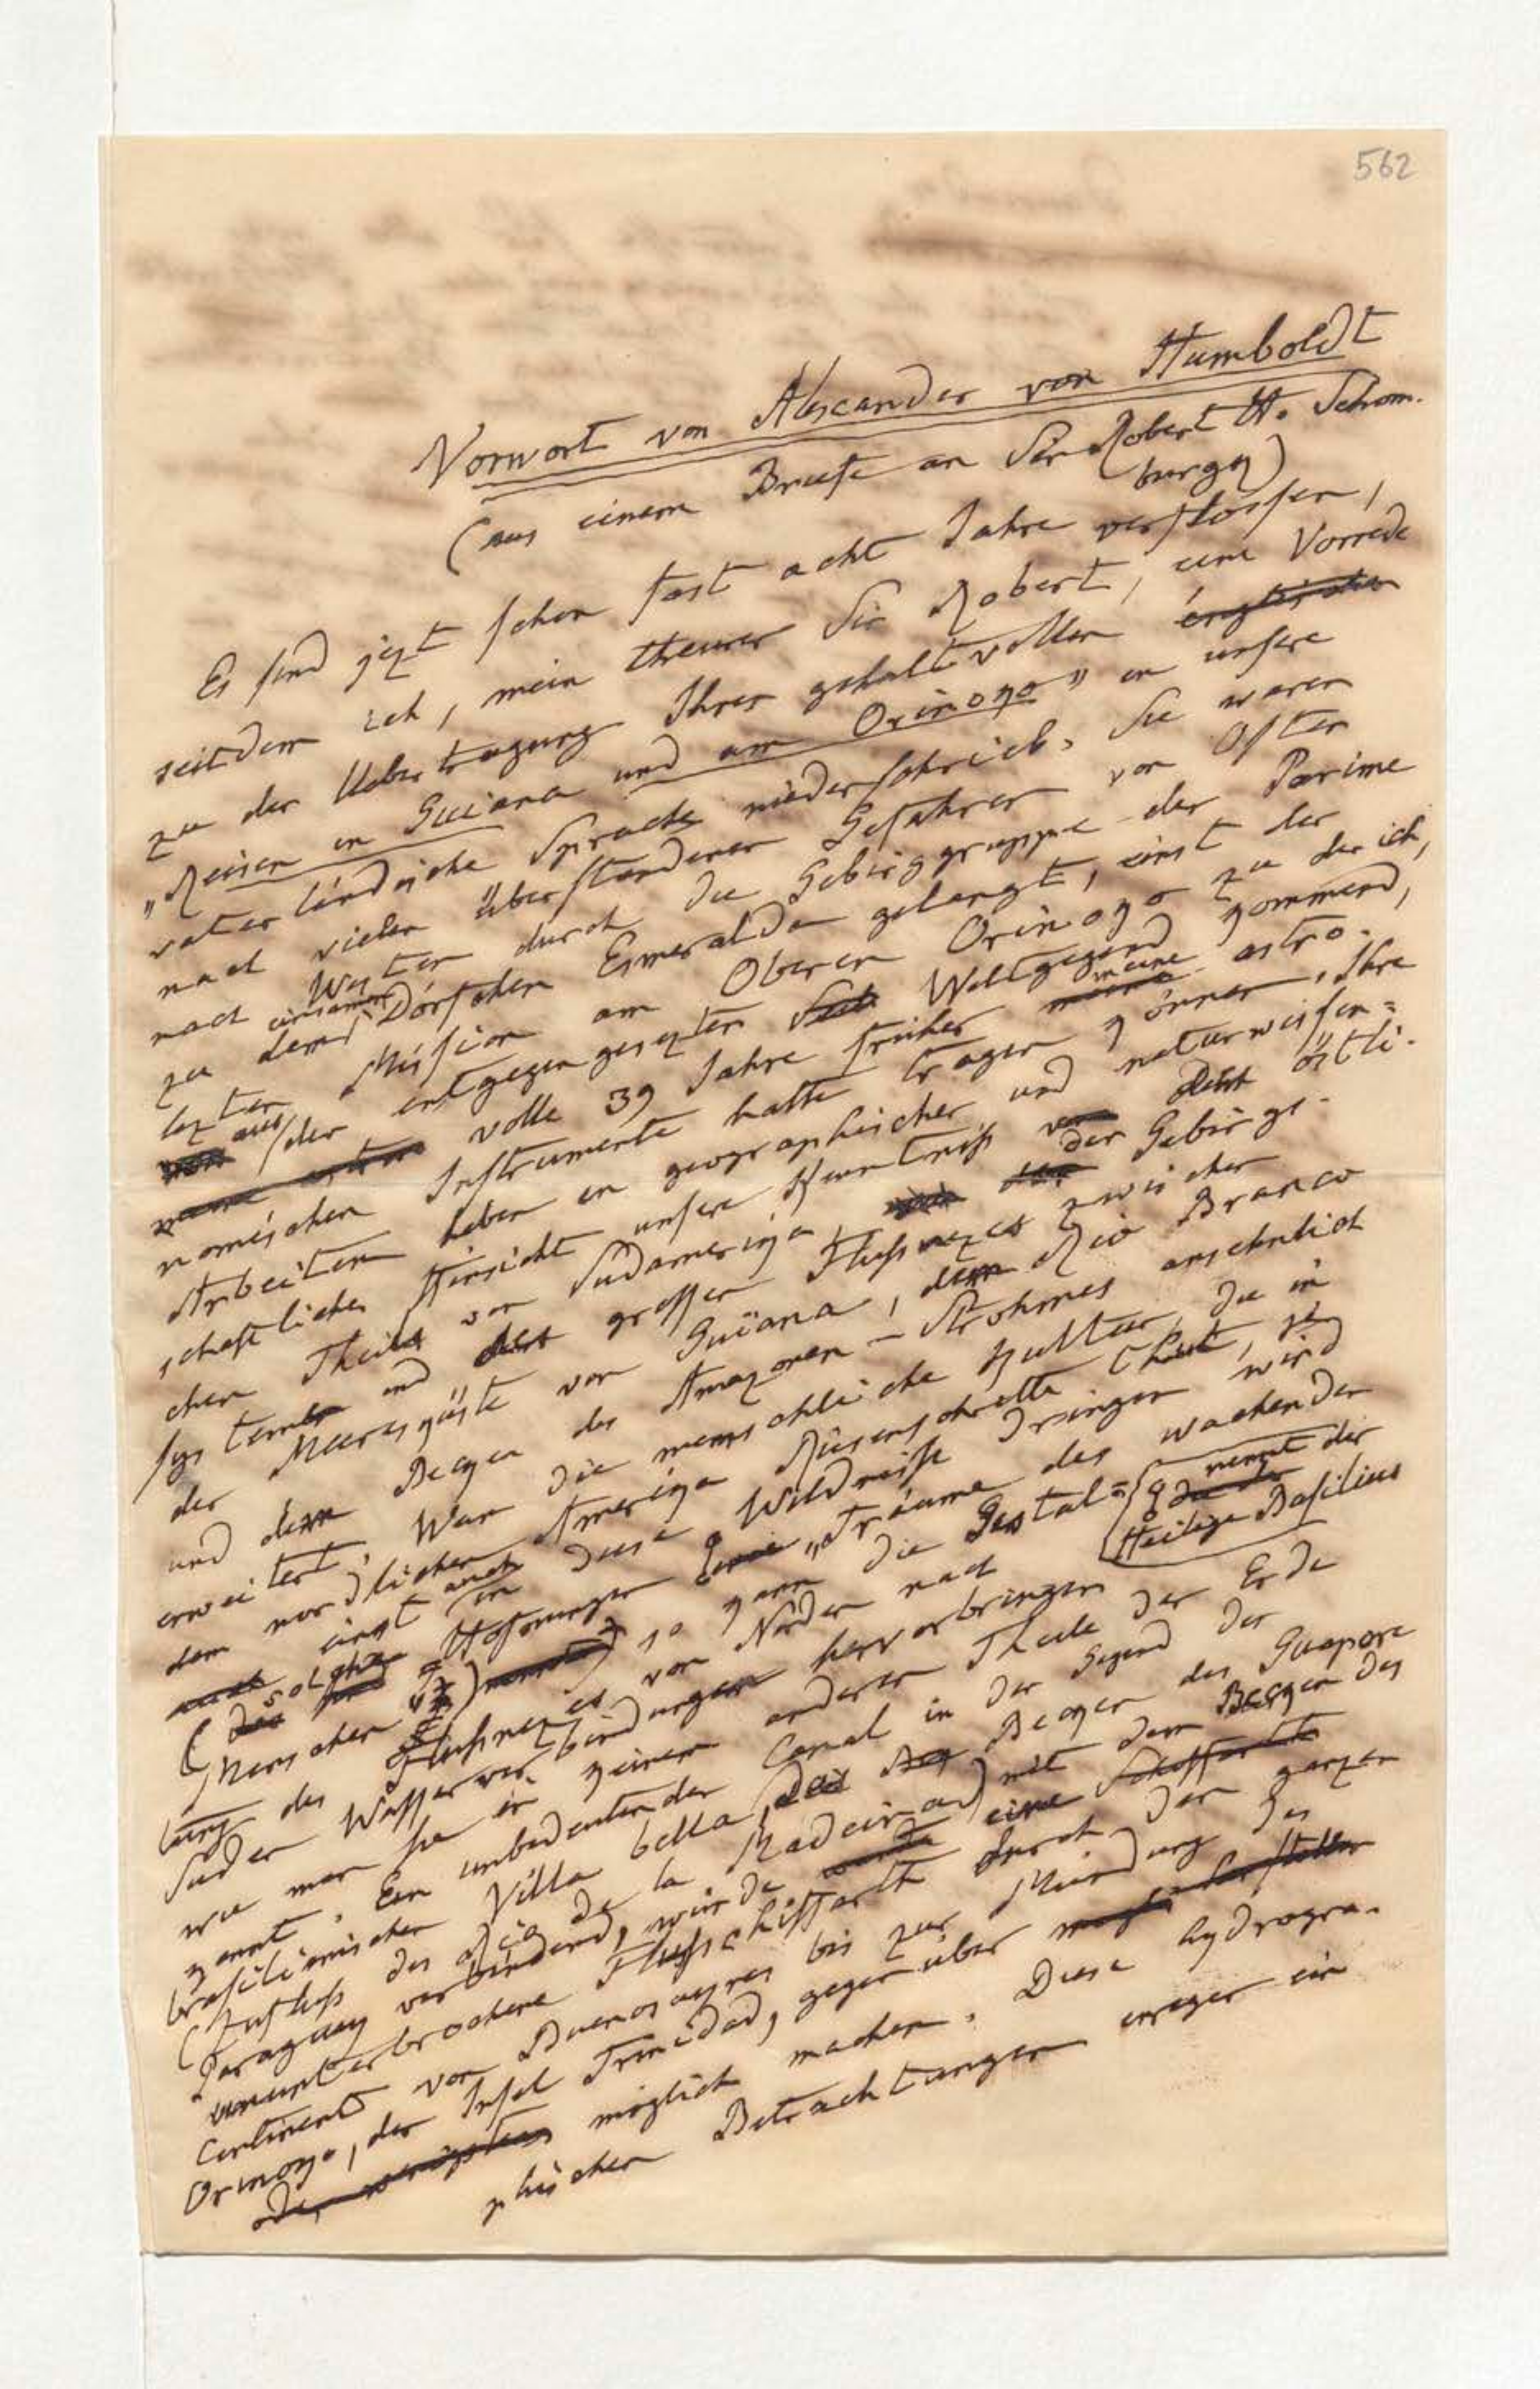 562
Vorwort von Alexander von Humboldt
(aus einem Briefe an Sir Robert H. Schom-
burgk)
Es sind jezt schon fast acht Jahre verflossen,
seitdem ich, mein theurer Sir Robert, eine Vorrede
zu der Uebertragung Ihrer gehaltvollen englischen
„Reisen in Guiana und am Orinoko" in unsere
vaterländische Sprache niederschrieb. Sie waren
nach vielen überstandenen Gefahren von Osten
nach Westen durch die Gebirgsgruppe der Parime
zu dem einsamen Dörfchen Esmeralda gelangt, einst der
lezten Mission am Oberen Orinoko zu der ich,
von aus der entgegengesezten Welt gegend kommend,
volle 39 Jahre früher meine meine astro-
nomischen Instrumente hatte tragen können. Ihre
Arbeiten haben in geographischer und naturwissen-
schaftlicher Hinsicht unsere Kenntniß von des östli-
chen Theils von Südamerika, der Gebirgs-
systeme und des grossen Flußnezes zwischen
der Meeresküste von Guiana, dem Rio Branco
und dem Becken des Amazonen-Strohmes ansehnlich
erweitert. Wan die menschliche Kultur, die in
dem nordlichen Amerika Riesenschritte thut,
auch einst auch in diese Wildnisse dringen wird
(solche Hofnungen „Träume des wachenden
Menschen") nennt der
Heilige Basilius
so kann die Gestal-
tung des Flußnezes von Norden nach
Süden Wasserverbindungen hervorbringen
wie man sie in keinem anderen Theile der Erde
kennt. Ein unbedeutender Canal in der Gegend der
brasilianischen Villa bella, das Becken des Guapore
(Zufluß des Rio de la Madeira) mit dem Becken des
Paraguay verbindend, würde eine Schifffarth
ununterbrochene Flußschiffarth durch den ganzen
Continent von Buenos ayres bis zur Mündung des
Orinoko, der Insel Trinidad, gegenüber
möglich machen. Diese hydrogra-
phischen Betrachtungen erregen ein